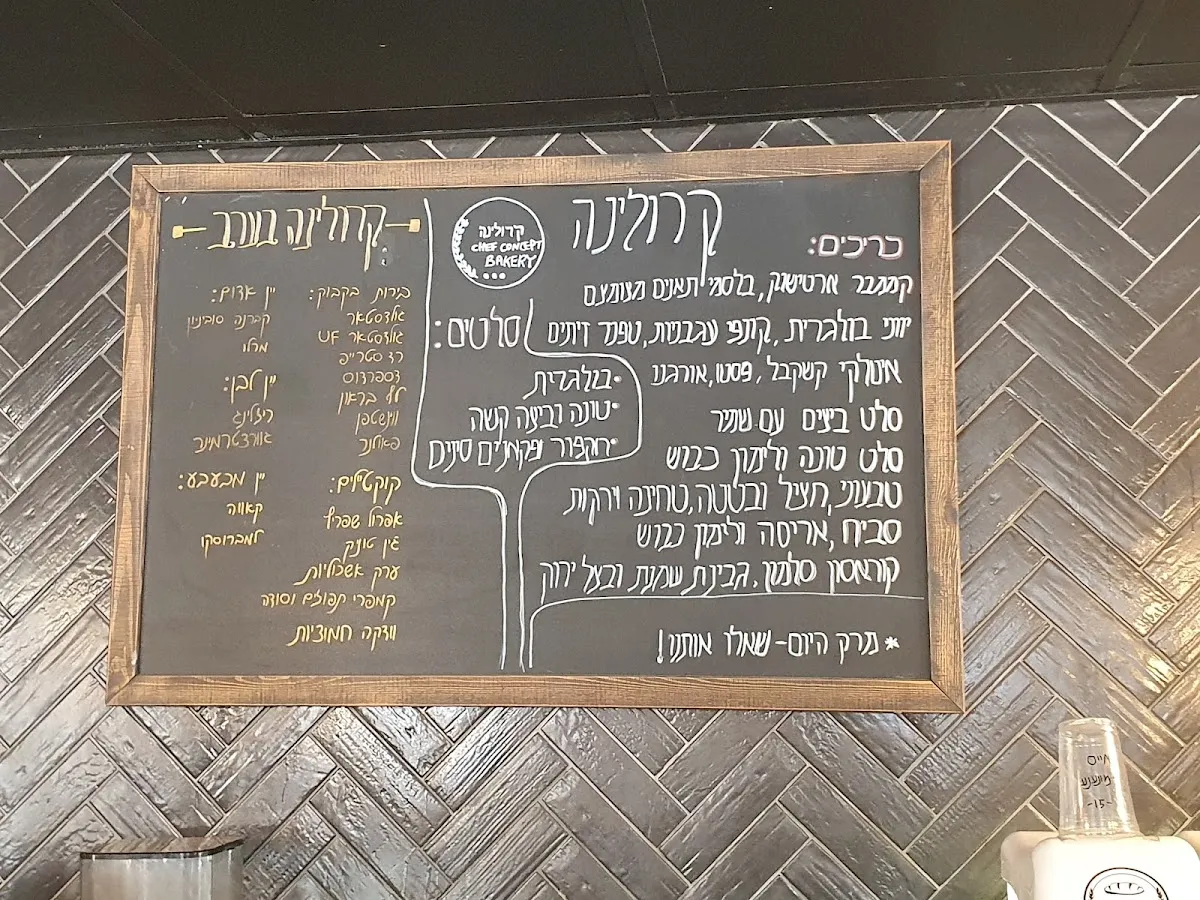 קרולינה
כריכים:
קממבר ארטישוק, בלסמי תאנים מצומצם
יווני בולגרית, קונפי עגבניות, טפנד זיתים
איטלקי קשקבל, פסטו, אורגנו
סלט ביצים עם שמיר
סלט טונה ולימון כבוש
טבעוני, חציל ובטטה, טחינה וירקות
סביח, אריסה ולימון כבוש
קוראסון סלמון, גבינת שמנת ובצל ירוק
* מרק היום - שאלו אותנו!
קרולינה
CHEF CONCEPT
BAKERY
סלטים:
• בולגרית
• טונה וביצה קשה
• רוקפור ופקאנים סינים
קרולינה בערב
בירות בקבוק:
גולדסטאר
גולדסטאר UF
רד סטרייפ
דספרדוס
לף בראון
ווינשטפן
פאולנר
קוקטילים:
אפרול שפריץ
ג'ין טוניק
ערק אשכוליות
קמפרי תפוזים וסודה
וודקה חמוציות
יין אדום:
קברנה סוביניון
מרלו
יין לבן:
ריזלינג
גוורצטרמינר
יין מבעבע:
קאווה
למברוסקו
חייס
מונפש
-15-